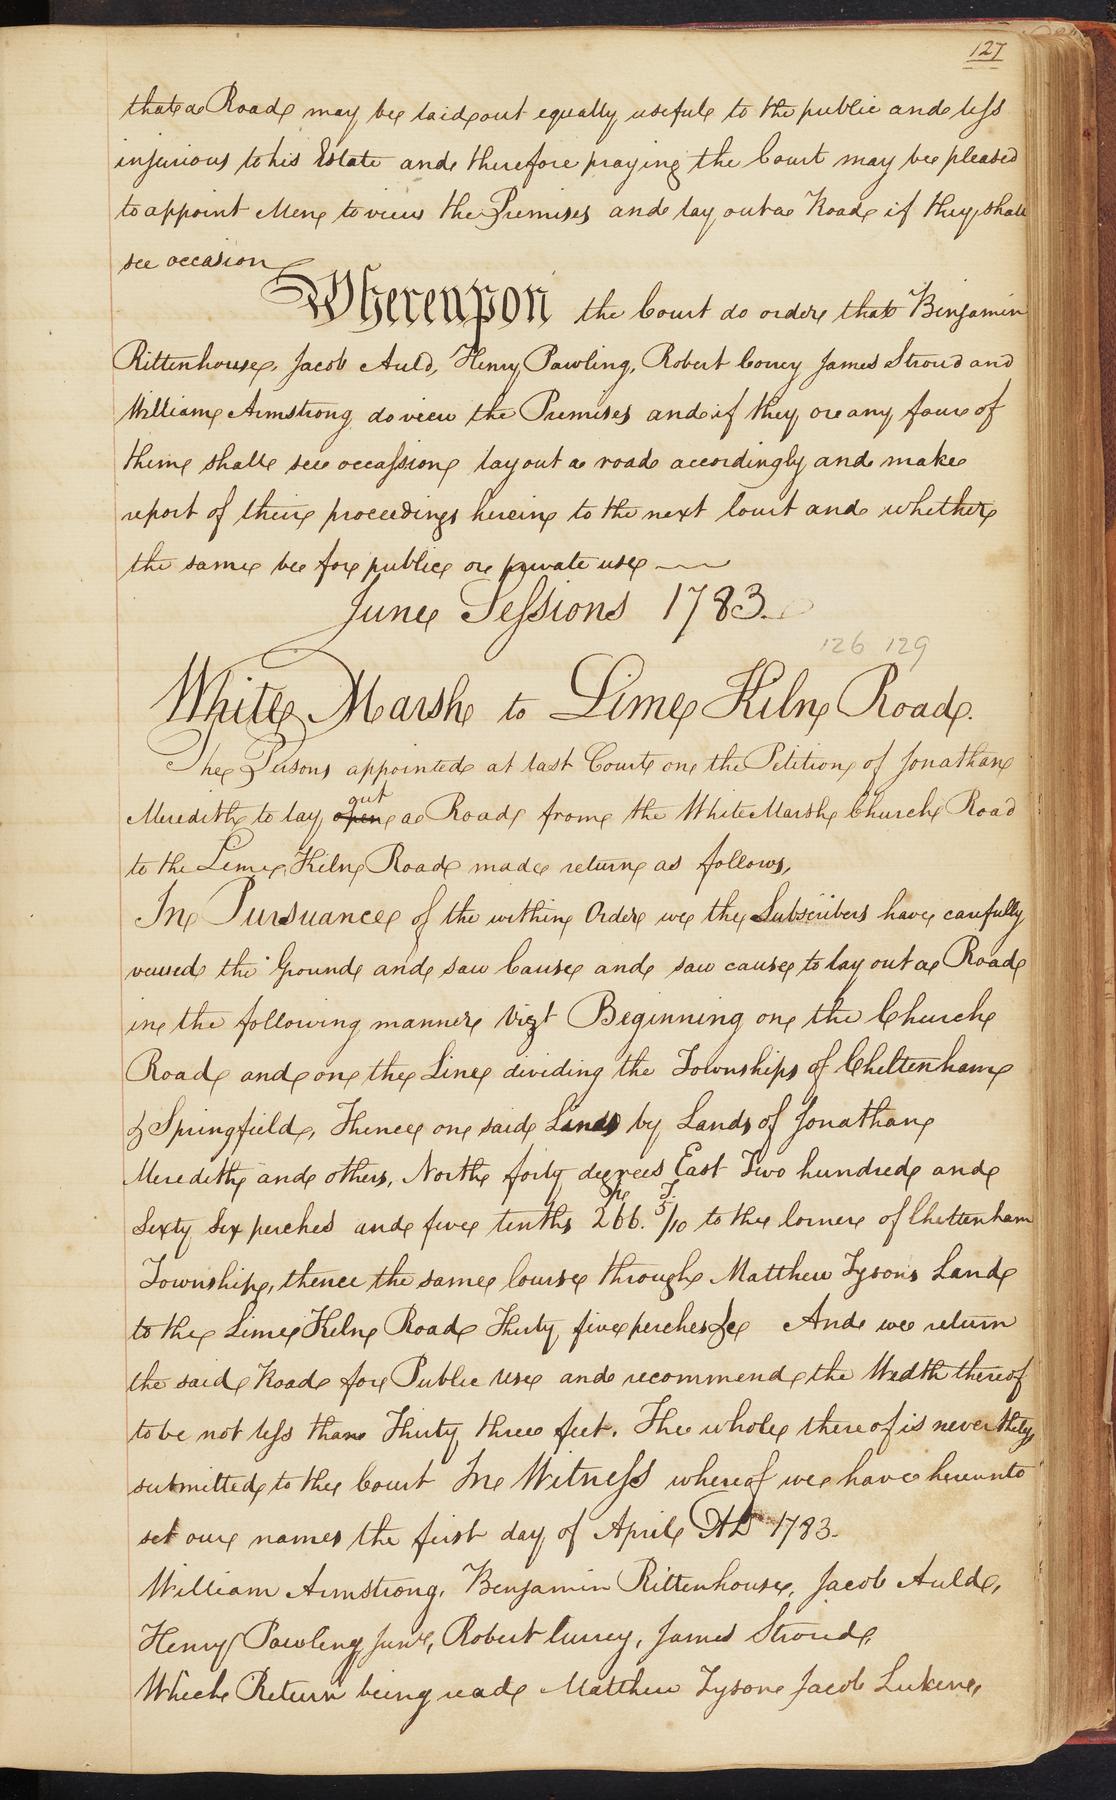 127
that a Road may be laid out equally useful to the public and less
injurious to his Estate and therefore praying the Court may be pleased
to appoint Men to view the Premises and lay out a Road if they shall
see occasion
Whereupon the Court do order that Benjamin
Rittenhouse, Jacob Auld, Henry Pawling, Robert Correy James Stroud and
William Armstrong do view the Premises and if they or any four of
them shall see occassion lay out a road accordingly and make
report of their proceedings herein to the next Court and whether
the same be for public or private use
June Sessions 1783.
126 129
White Marsh to Lime Kiln Road.
The Persons appointed at last Court on the Petition of Jonathan
out
Meredith to lay open a Road from the White Marsh Church Road
to the Lime Kiln Road made return as follows,
In Pursuance of the within Order we the Subscribers have carefully
veiwed the Ground and saw Cause and saw cause to lay out a Road
in the following manner Vizt Beginning on the Church
Road and on the Line dividing the Townships of Cheltenham
& Springfield, Thence on said Lines by Lands of Jonathan
Meredith and others, North forty degrees East Two hundred and
pe T.
Sixty Six perches and five tenths 266. 5/10 to the Corner of Cheltenham
Township, thence the same Course through Matthew Tysons Land
to the Lime Kiln Road Thirty five perches &c And we return
the said Road for Public use and recommend the Width thereof
to be not less than Thirty three feet. The whole thereof is neverthely
submitted to the Court In Witness whereof we have hereunto
set our names the first day of April AD 1783.
William Armstrong, Benjamin Rittenhouse, Jacob Auld,
Henry Pawling Junr, Robert Currey, James Stroud,
Which Return being read Matthew Tyson Jacob Lukens,